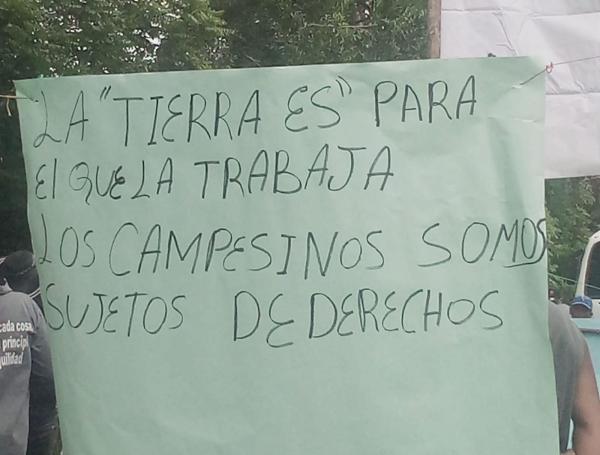 LA "TIERRA ES" PARA
El QUE LA TRABAJA
LOS CAMPESINOS SOMOS
SUJETOS DE DERECHOS
cada cosa
principi
quilidad